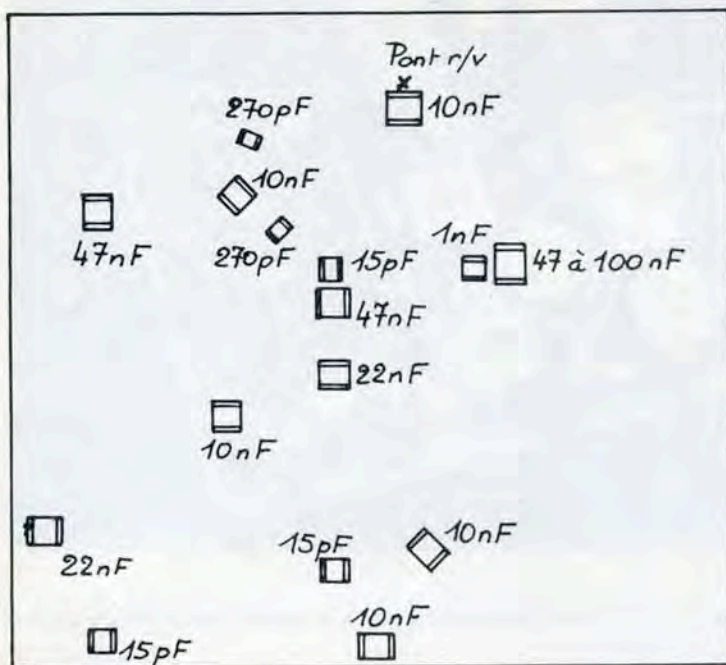 Pont r/v
10nF
270pF
10nF
47nF
270pF
1nF
15pF
47 à 100nF
47nF
22nF
10nF
22nF
15pF
10nF
15pF
10nF